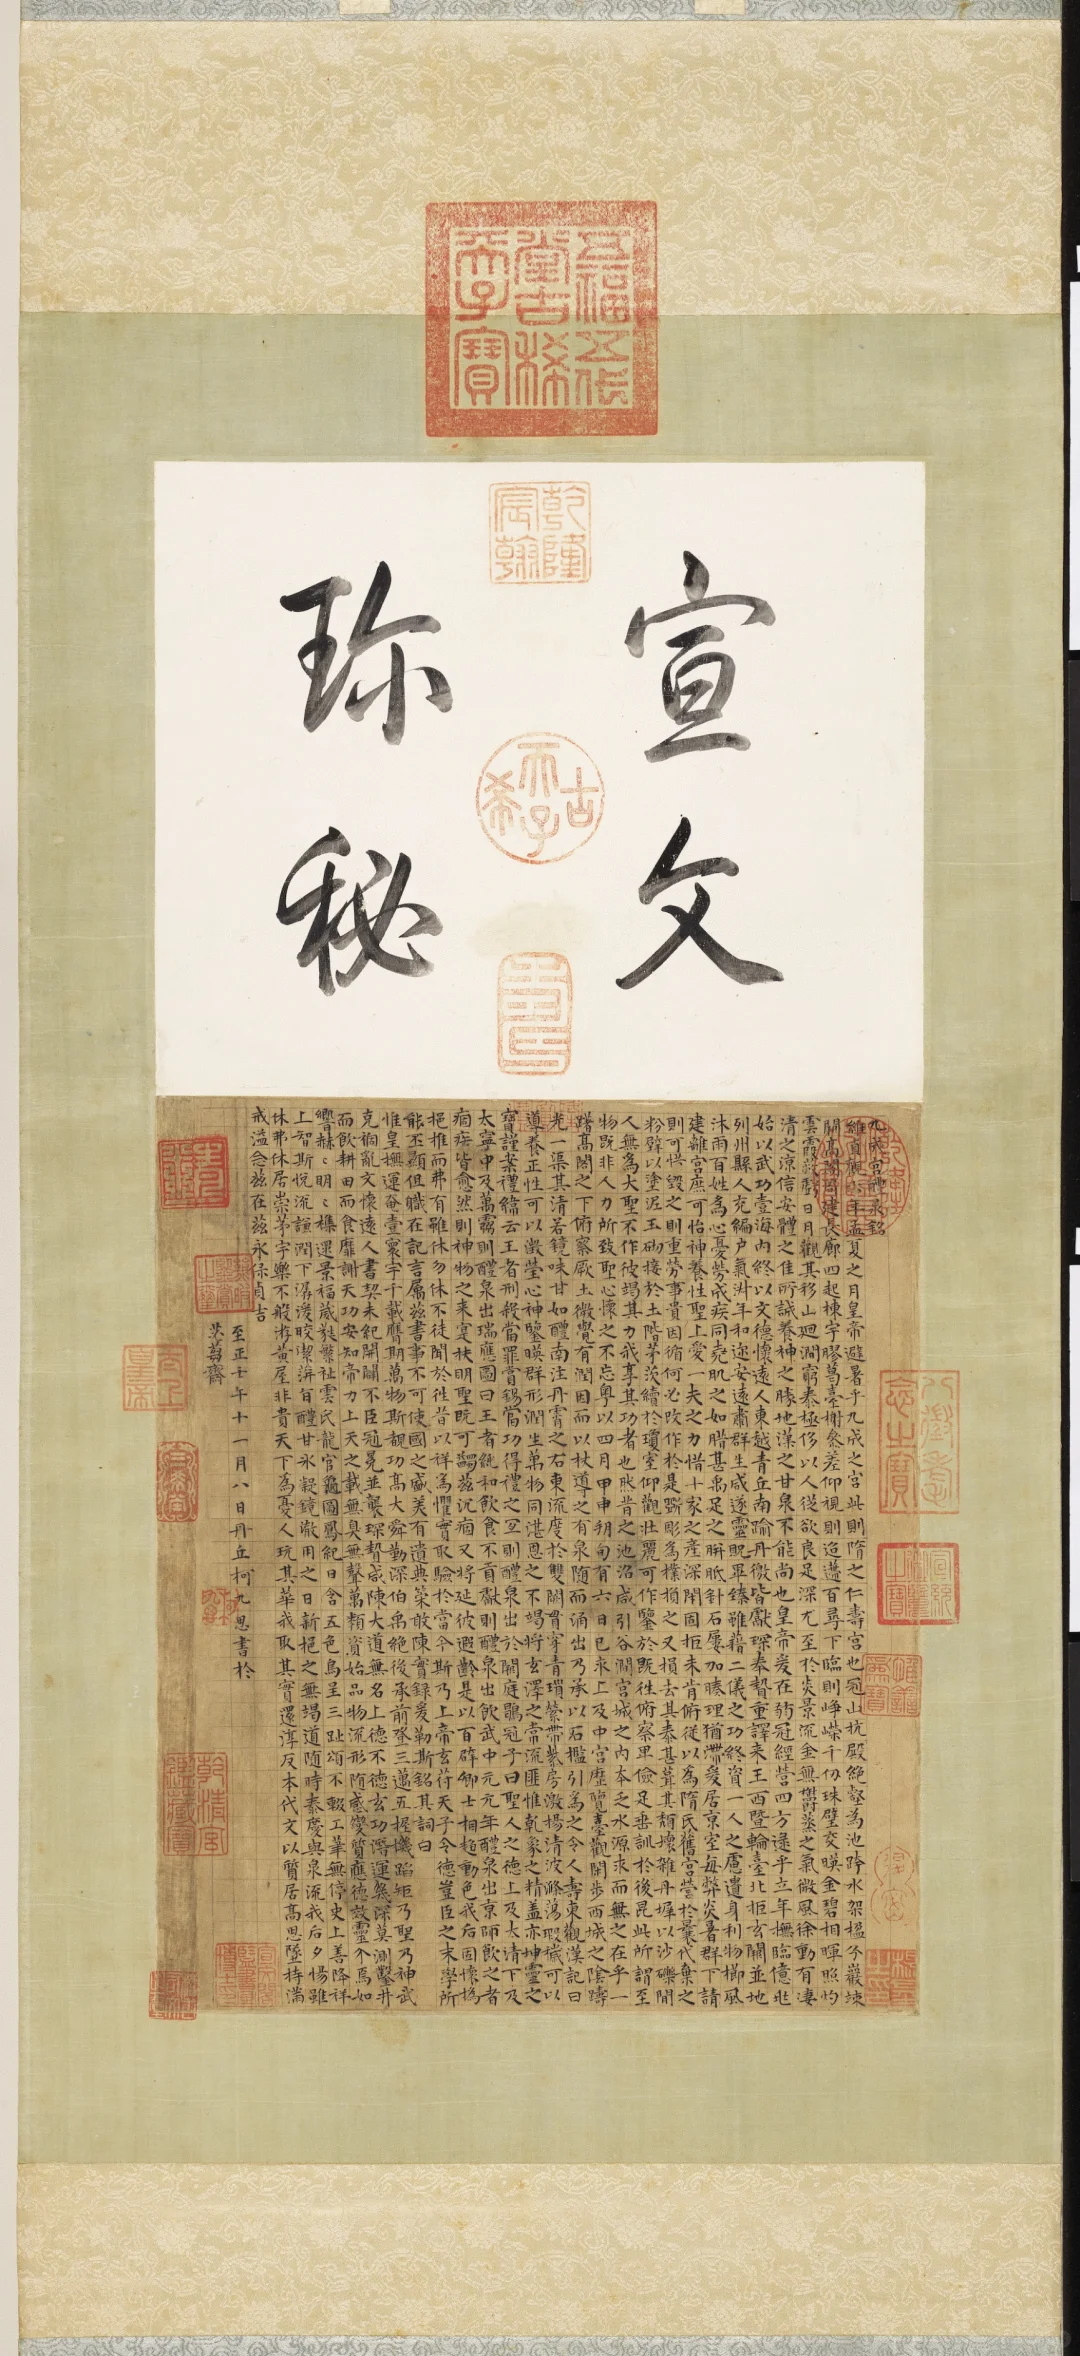 五福五代
堂古稀
天子寶
乾隆
宸翰
宣文
珍秘
古希天子
九成宮醴泉銘
維貞觀六年孟夏之月皇帝避暑乎九成之宮此則隋之仁壽宮也冠山抗殿絕壑為池跨水架楹分巖竦
闕高閣周建長廊四起棟宇膠葛臺榭參差仰視則迢遰百尋下臨則崢嶸千仞珠璧交暎金碧相暉照灼
雲霞蔽虧日月觀其移山廻澗窮泰極侈以人從欲良足深尤至於炎景流金無鬱蒸之氣微風徐動有淒
清之涼信安體之佳所誠養神之勝地漢之甘泉不能尚也皇帝爰在弱冠經營四方逮乎立年撫臨億兆
始以武功壹海內終以文德懷遠人東越青丘南踰丹徼皆獻琛奉贄重譯來王西暨輪臺北拒玄闕並地
列州縣人充編戶氣淑年和邇安遠肅群生咸遂靈貺畢臻雖藉二儀之功終資一人之慮遺身利物櫛風
沐雨百姓為心憂勞成疾同堯肌之如腊甚禹足之胼胝針石屢加腠理猶滯爰居京室每弊炎暑群下請
建離宮庶可怡神養性聖上愛一夫之力惜十家之產深閉固拒未肯俯從以為隋氏舊宮營於曩代棄之
則可惜毀之則重勞事貴因循何必改作於是斲彫為樸損之又損去其泰甚葺其頹壞雜丹墀以沙礫間
粉壁以塗泥玉砌接於土階茅茨續於瓊室仰觀壯麗可作鑒於既往俯察卑儉足垂訓於後昆此所謂至
人無為大聖不作彼竭其力我享其功者也然昔之池沼咸引谷澗宮城之內本乏水源求而無之在乎一
物既非人力所致聖心懷之不忘粵以四月甲申朔旬有六日己亥上及中宮歷覽臺觀閒步西城之陰躊
躇高閣之下俯察厥土微覺有潤因而以杖導之有泉隨而涌出乃承以石檻引為之令人壽東觀漢記曰
光一渠其清若鏡味甘如醴南注丹霄之右東流度於雙闕貫穿青瑣縈帶紫房激揚清波滌蕩瑕穢可以
導養正性可以澂瑩心神鑒暎群形潤生萬物同湛恩之不竭將玄澤之常流匪惟乾象之精盖亦坤靈之
寶謹案禮緯云王者刑殺當罪賞錫當功得禮之宜則醴泉出於闕庭鶡冠子曰聖人之德上及太清下及
太寧中及萬靈則醴泉出瑞應圖曰王者純和飲食不貢獻則醴泉出飲武中元元年醴泉出京師飲之者
痼疾皆愈然則神物之来寔扶明聖既可蠲茲沉痼又將延彼遐齡是以百辟卿士相趨動色我后固懷撝
挹推而弗有雖休勿休不徒聞於往昔以祥為懼實取驗於當今斯乃上帝玄符天子令德豈臣之末學所
能丕顯但職在記言屬茲書事不可使國之盛美有遺典策敢陳實錄爰勒斯銘其詞曰
惟皇撫運奄壹寰宇千載膺期萬物斯覩功高大舜勤深伯禹絕後承前登三邁五握機蹈矩乃聖乃神武
克禍亂文懷遠人書契未紀開闢不臣冠冕並襲琛贄咸陳大道無名上德不德玄功潛運幾深莫測鑿井
而飲耕田而食靡謝天功安知帝力上天之載無臭無聲萬類資始品物流形隨感變質應德效靈介焉如
響赫〻明〻雜遝景福葳蕤繁祉雲氏龍官龜圖鳳紀日含五色烏呈三趾頌不輟工筆無停史上善降祥
上智斯悅流謙潤下潺湲皎潔萍旨醴甘冰凝鏡澈用之日新挹之無竭道隨時泰慶與泉流我后夕惕雖
休弗休居崇茅宇樂不般游黃屋非貴天下為憂人玩其華我取其實還淳反本代文以質居高思墜持滿
戒溢念茲在茲永保貞吉
至正壬午十一月八日丹丘柯九思書於
齋
八徵耄
念之寶
宣統
御覽
之寶
乾清宮
鑒藏寶
太上
皇帝